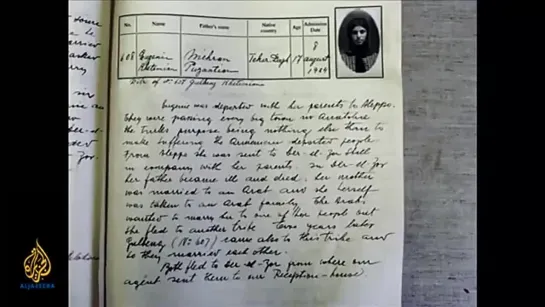 No. Name Father's name Native country Age Admission Date
608 Eugenie Mihran 17 8 august
Eugenie was deported with her parents to Aleppo.
They were passing every big town in Anatolia
the turks purpose being nothing else than to
make suffering the Armenian deported people.
From Aleppo she was sent to Der-el-Zor still
in company with her parents. In Der-el-Zor
her father became ill and died; her mother
was married to an Arab and she herself
was taken to an Arab family. The Arabs
wanted to marry her to one of her people but
she fled to another tribe. Two years later
(No 607) came also to this tribe and
so they married each other.
Both fled to Der-el-Zor from where our
agent sent them to our Reception-house.
ALJAZEERA